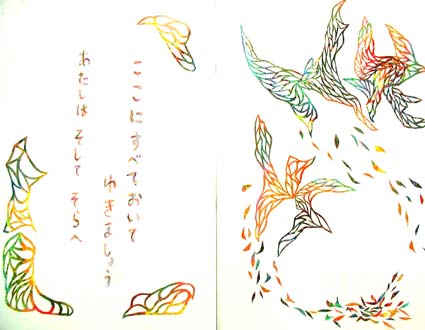 ここにすべておいて
ゆきましょう
あたしは そして そらへ